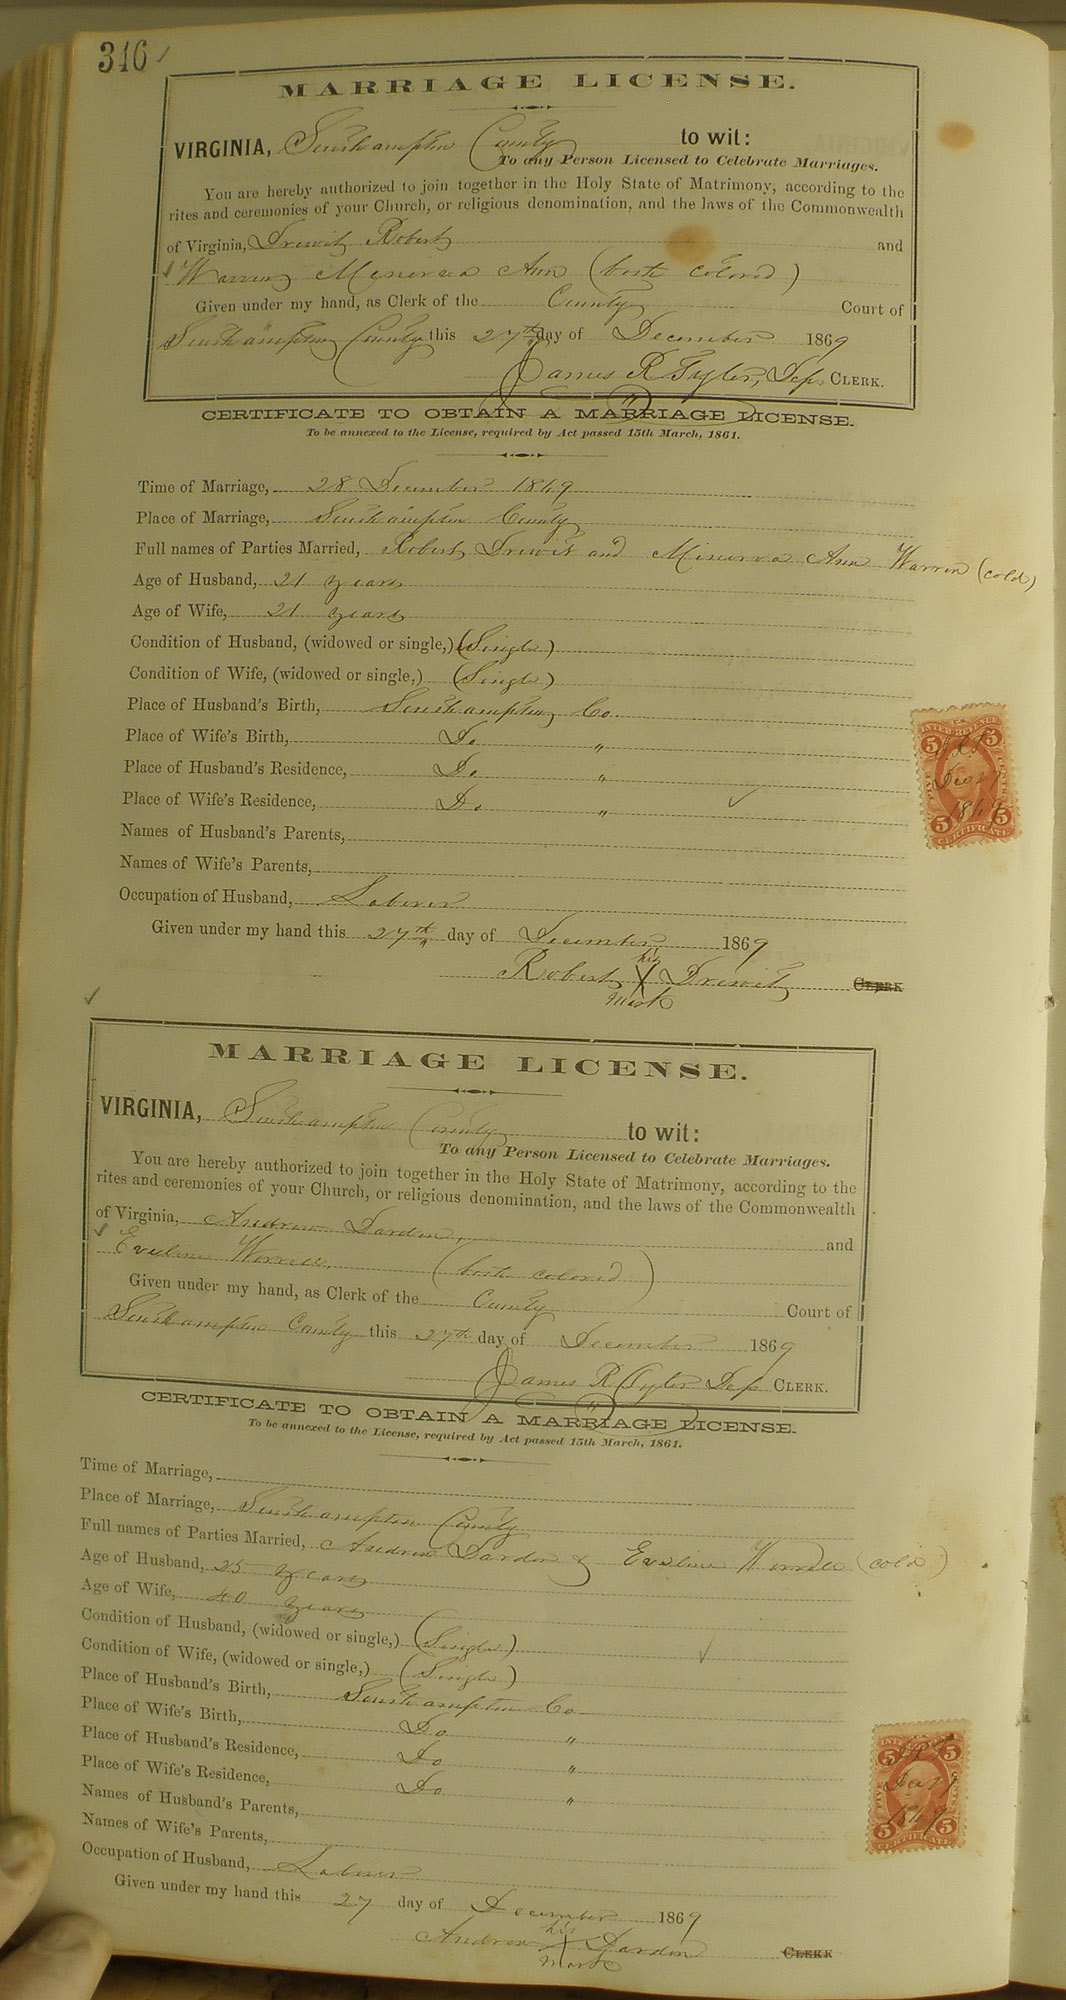 316
MARRIAGE LICENSE.
VIRGINIA, Southampton County to wit:
To any Person Licensed to Celebrate Marriages.
You are hereby authorized to join together in the Holy State of Matrimony, according to the
rites and ceremonies of your Church, or religious denomination, and the laws of the Commonwealth
of Virginia, Drewit Robert and
Warren Minerva Ann (both colored)
Given under my hand, as Clerk of the County Court of
Southampton County this 27th day of December 1869
James R Tyler, Dep. CLERK.
CERTIFICATE TO OBTAIN A MARRIAGE LICENSE.
To be annexed to the License, required by Act passed 15th March, 1861.
Time of Marriage, 28 December 1869
Place of Marriage, Southampton County
Full names of Parties Married, Robert Drewit and Minerva Ann Warren (cold)
Age of Husband, 21 years
Age of Wife, 21 years
Condition of Husband, (widowed or single,) (Single)
Condition of Wife, (widowed or single,) (Single)
Place of Husband's Birth, Southampton Co.
Place of Wife's Birth, Do "
Place of Husband's Residence, Do "
Place of Wife's Residence, Do "
Names of Husband's Parents,
Names of Wife's Parents,
Occupation of Husband, Laborer
Given under my hand this 27th day of December 1869
his
Robert X Drewit CLERK
mark
INTER. REVENUE
5 5
Dec 27
1869
5 5
CERTIFICATE
MARRIAGE LICENSE.
VIRGINIA, Southampton County to wit:
To any Person Licensed to Celebrate Marriages.
You are hereby authorized to join together in the Holy State of Matrimony, according to the
rites and ceremonies of your Church, or religious denomination, and the laws of the Commonwealth
of Virginia, Andrew Darden, and
Eveline Worrell, (both colored)
Given under my hand, as Clerk of the County Court of
Southampton County this 27th day of December 1869
James R Tyler Dep CLERK.
CERTIFICATE TO OBTAIN A MARRIAGE LICENSE.
To be annexed to the License, required by Act passed 15th March, 1861.
Time of Marriage,
Place of Marriage, Southampton County
Full names of Parties Married, Andrew Darden & Eveline Worrell (cold)
Age of Husband, 25 years
Age of Wife, 40 years
Condition of Husband, (widowed or single,) (Single)
Condition of Wife, (widowed or single,) (Single)
Place of Husband's Birth, Southampton Co
Place of Wife's Birth, Do "
Place of Husband's Residence, Do "
Place of Wife's Residence, Do "
Names of Husband's Parents,
Names of Wife's Parents,
Occupation of Husband, Laborer
Given under my hand this 27 day of December 1869
his
Andrew X Darden CLERK
mark
5 5
Dec 27
1869
5 5
CERTIFICATE